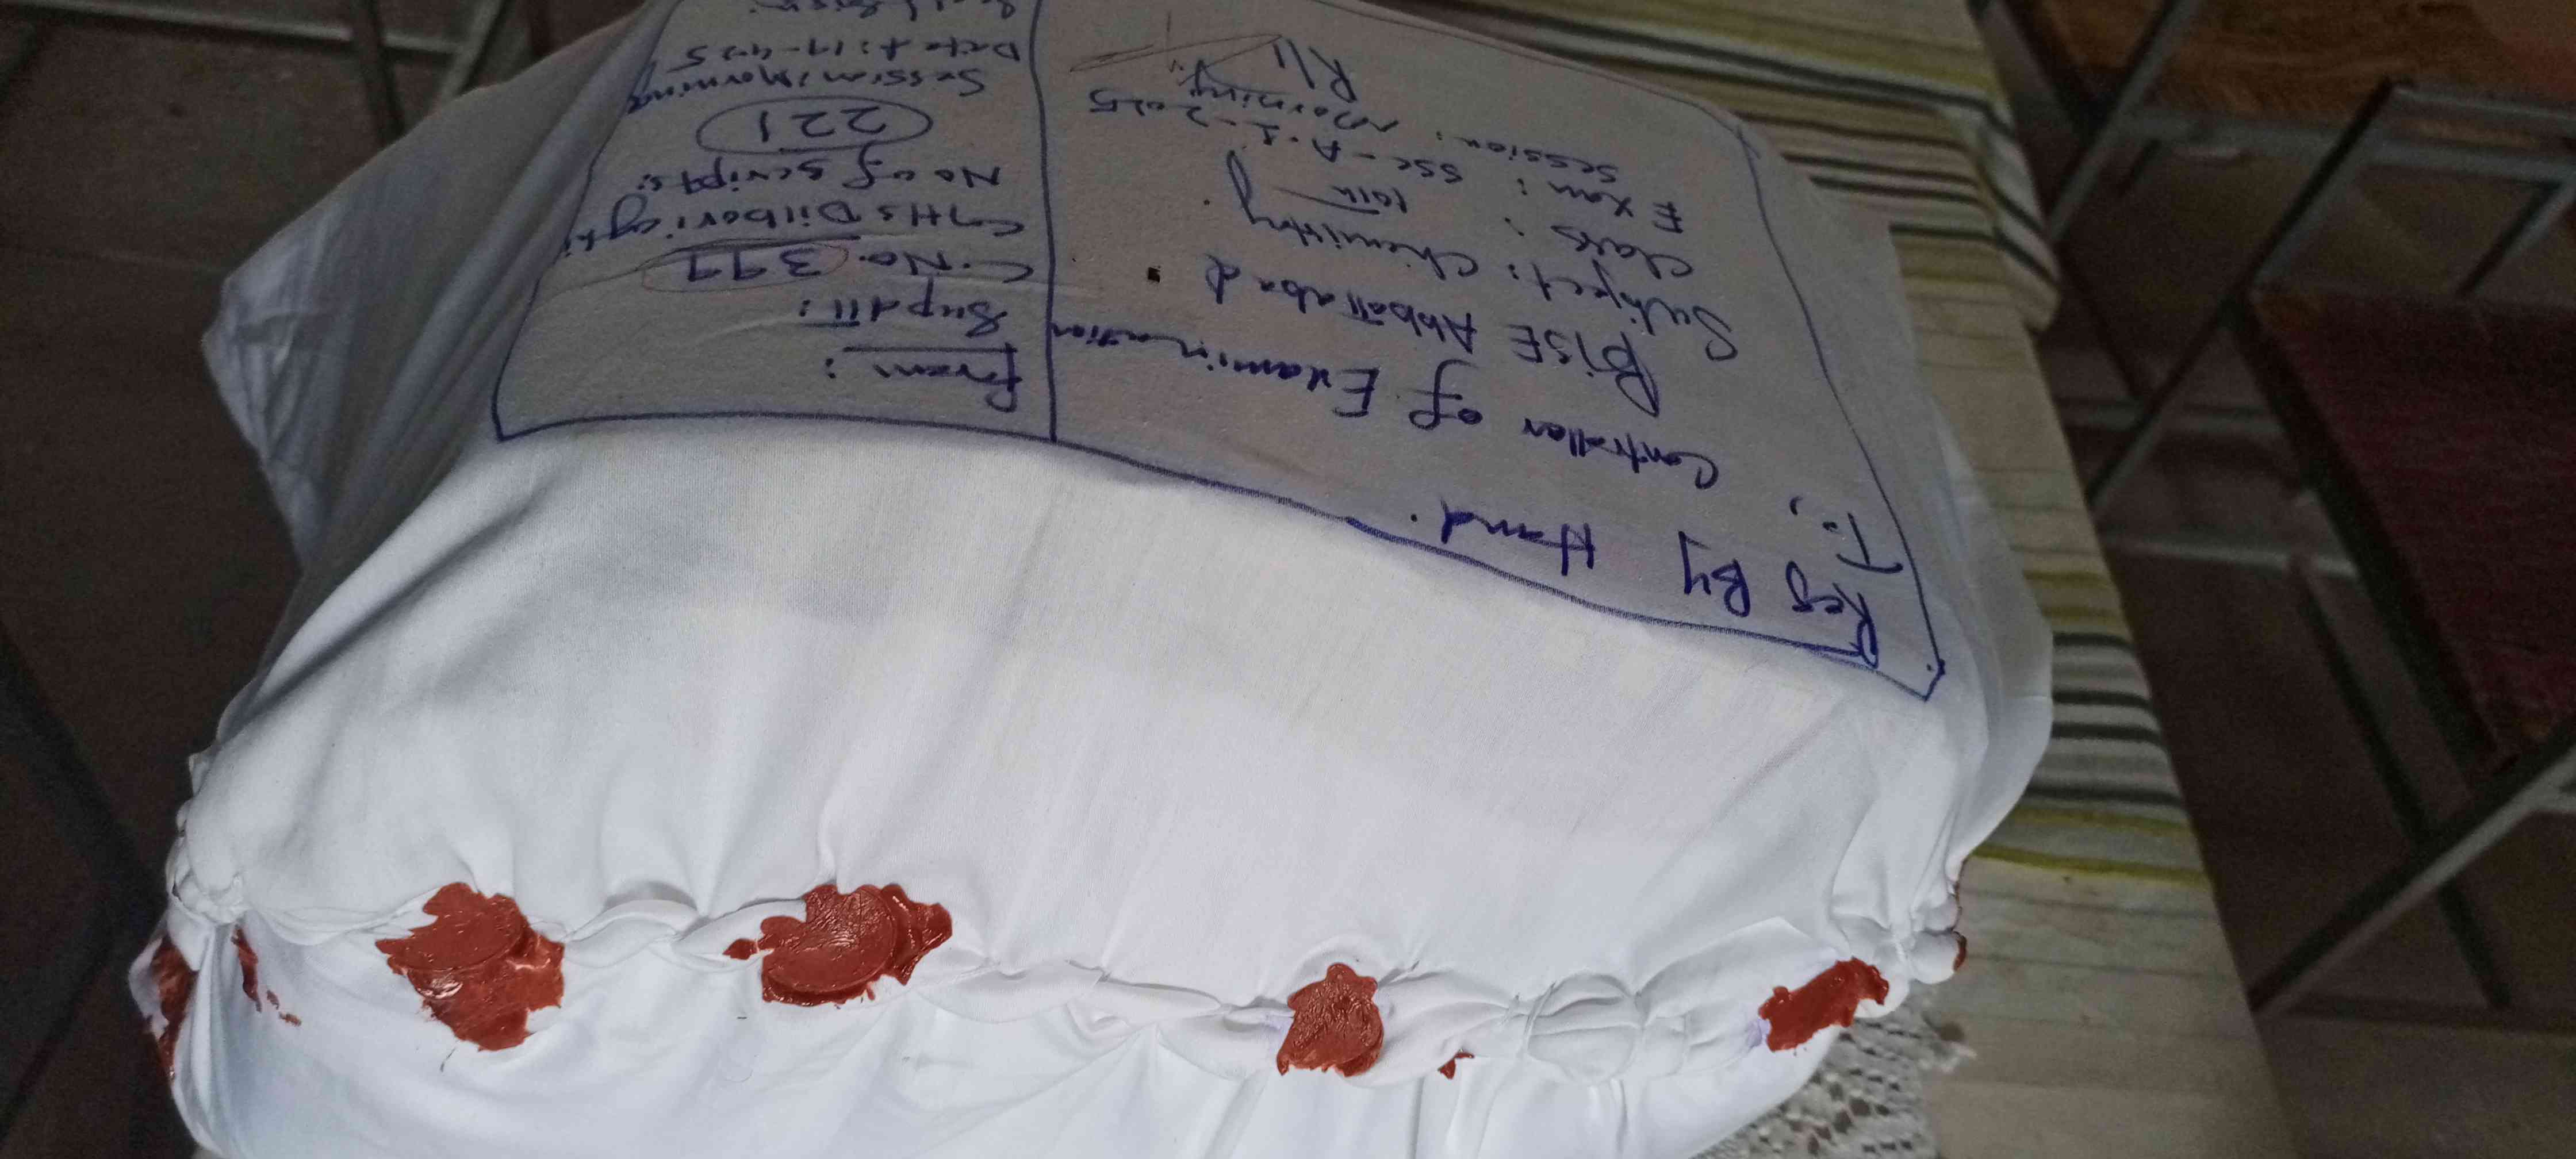 Reg By Hand.
To,
Controller of Examination
BISE Abbottabad
Subject: Chemistry
Class: 10th
Exam: SSC-A-I-2025
Session: Morning
R/U
From:
Supdtt:
C.No. 399
GHS Dilbori oghi
No of scripts:
221
Session: Morning
Dated: 19-4-25